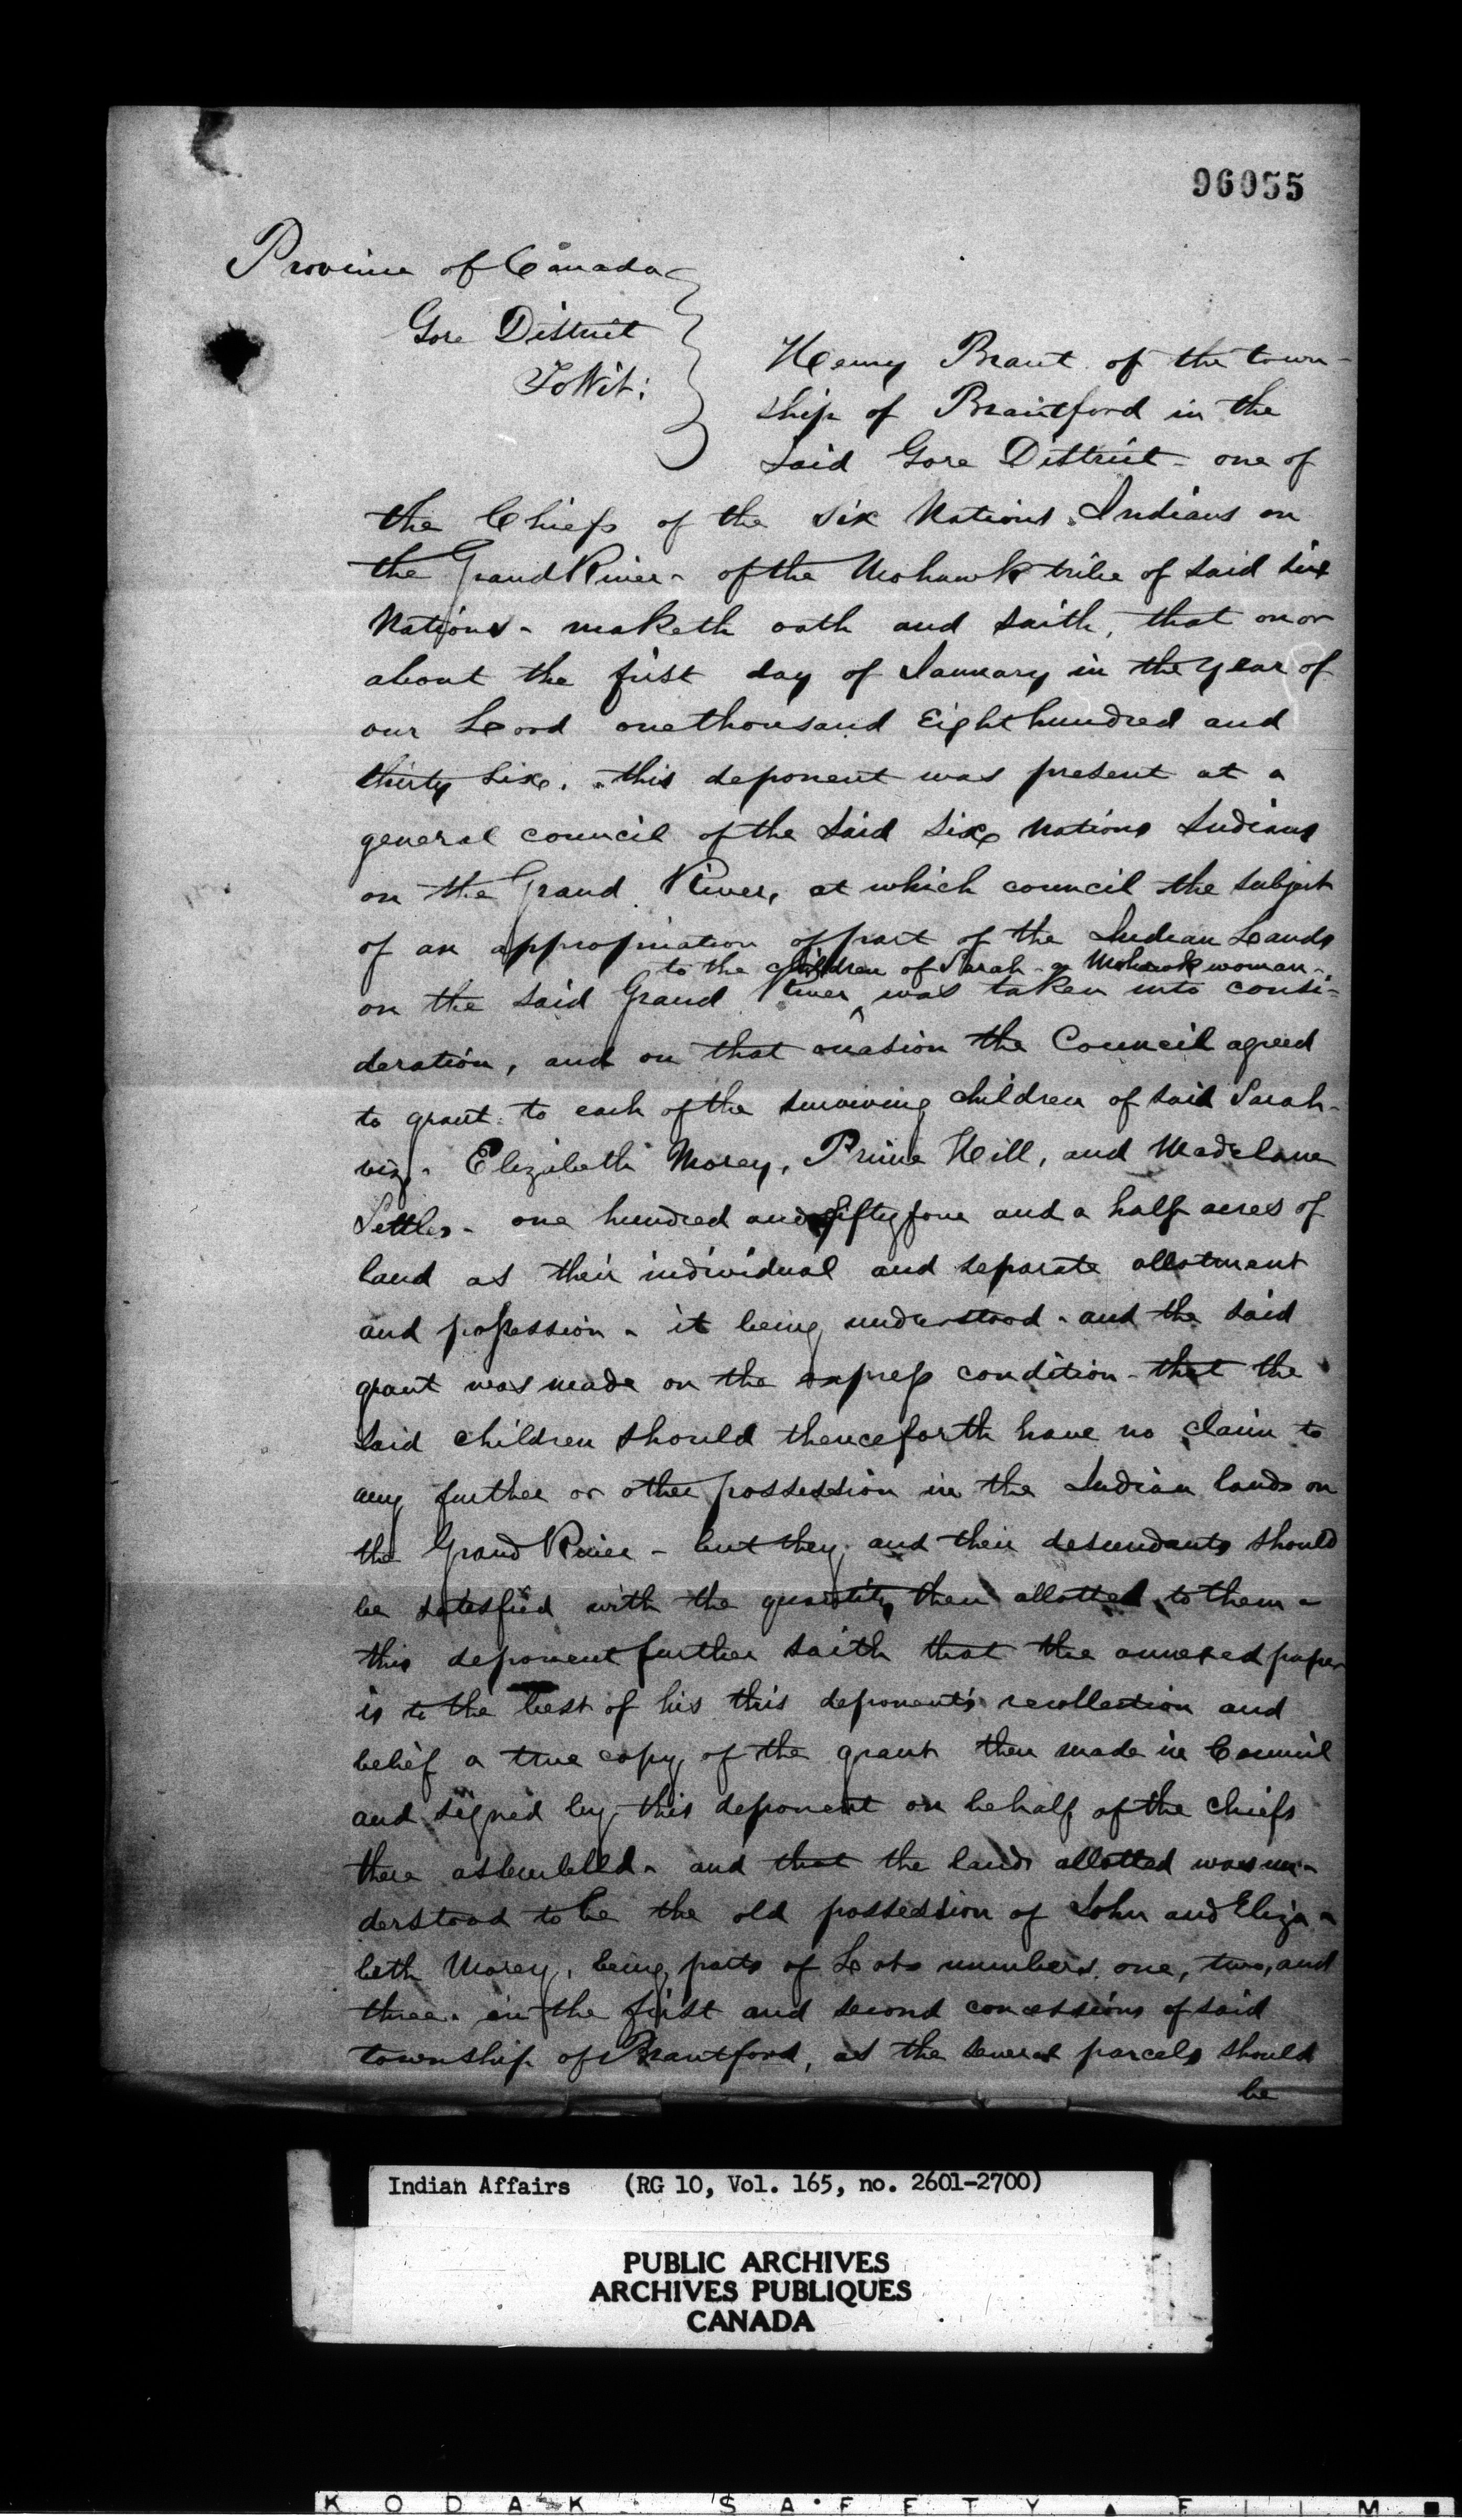 96055
Province of Canada
Gore District
To Wit:
Henry Brant of the town-
ship of Brantford in the
said Gore District - one of
the Chiefs of the Six Nations Indians on
the Grand River - of the Mohawk tribe of said Six
Nations - maketh oath and saith, that on or
about the first day of January in the year of
our Lord one thousand Eight hundred and
thirty six, this deponent was present at a
general council of the said Six Nations Indians
on the Grand River, at which council the subject
of an appropriation of part of the Indian Lands
to the children of Sarah - a Mohawk woman -
on the said Grand River ^ was taken into consi=
deration, and on that occasion the Council agreed
to grant to each of the surviving children of said Sarah -
viz. Elizabeth Morey, Prime Hill, and Madelane
Settles - one hundred and fifty four and a half acres of
land as their individual and separate allotment
and possession - it being understood - and the said
grant was made on the express condition - that the
said children should thenceforth have no claim to
any further or other possession in the Indian lands on
the Grand River - but they and their descendants should
be satisfied with the quantity then allotted to them -
this deponent further saith that the annexed paper
is to the best of his this deponent's recollection and
belief a true copy of the grant then made in Council
and signed by this deponent on behalf of the chiefs
there assembled - and that the lands allotted was un-
derstood to be the old possession of John and Eliza-
beth Morey, being parts of Lots numbers one, two, and
three in the first and second concessions of said
township of Brantford, as the several parcels should
be
Indian Affairs (RG 10, Vol. 165, no. 2601-2700)
PUBLIC ARCHIVES
ARCHIVES PUBLIQUES
CANADA
KODAK SAFETY FILM